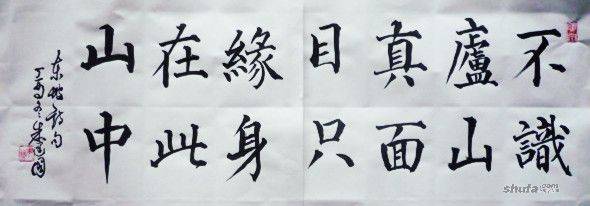 不識
廬山
真面
目只
緣身
在此
山中
东坡诗句
shufa.com